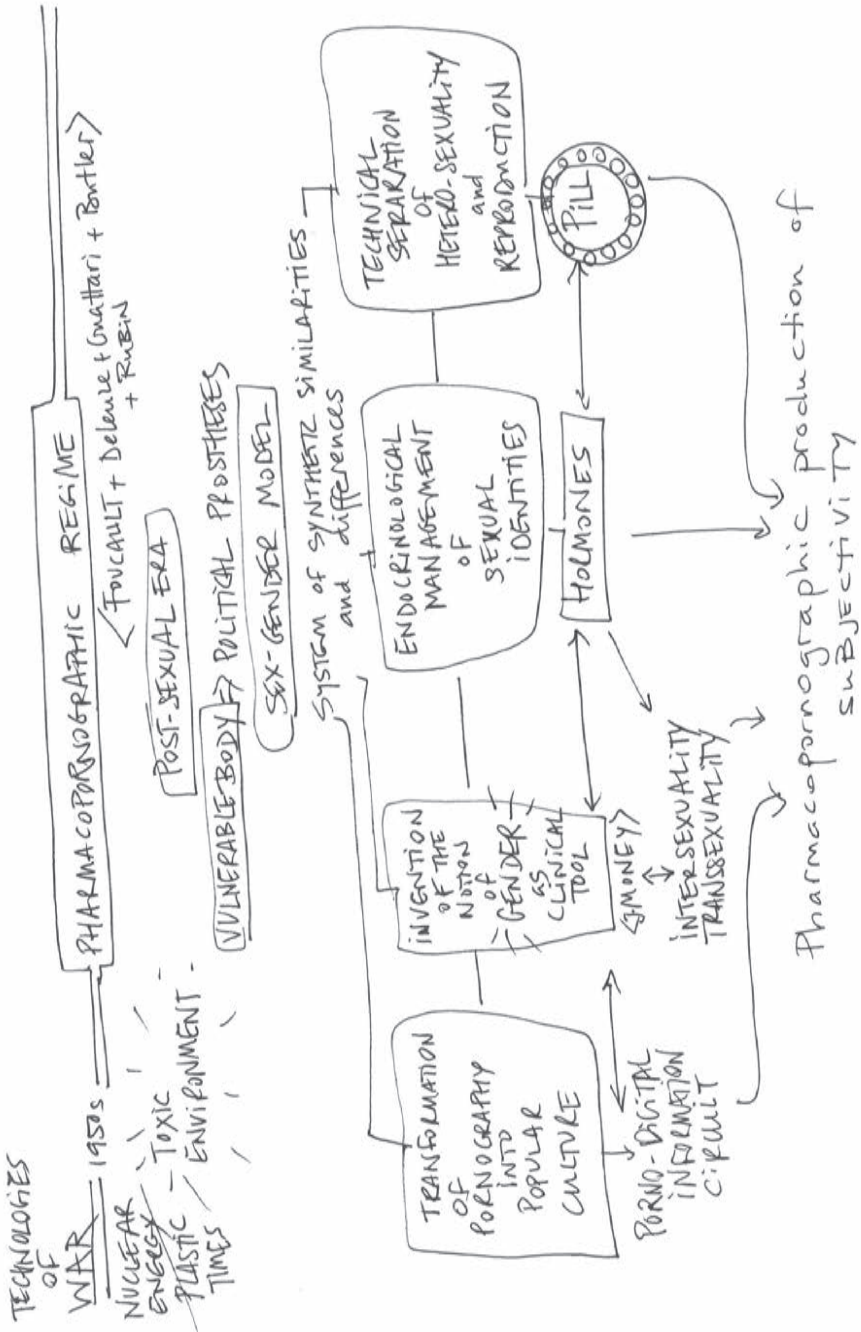 TECHNOLOGIES
OF
WAR
1950s
NUCLEAR
ENERGY
PLASTIC
TIMES
TOXIC
ENVIRONMENT
PHARMACOPORNOGRAPHIC REGIME
<FOUCAULT + Deleuze + Guattari + Buttler>
+ RUBIN
POST-SEXUAL ERA
VULNERABLE BODY => POLITICAL PROSTHESES
SEX-GENDER MODEL
SYSTEM OF SYNTHETIC SIMILARITIES
and differences
TRANSFORMATION
OF
PORNOGRAPHY
INTO
POPULAR
CULTURE
INVENTION
OF THE
NOTION
OF
GENDER
as
CLINICAL
TOOL
ENDOCRINOLOGICAL
MANAGEMENT
OF
SEXUAL
IDENTITIES
TECHNICAL
SEPARATION
OF
HETERO-SEXUALITY
and
REPRODUCTION
PORNO-DIGITAL
INFORMATION
CIRCUIT
<J.MONEY>
INTERSEXUALITY
TRANSSEXUALITY
HORMONES
PILL
Pharmacopornographic production of
SUBJECTIVITY